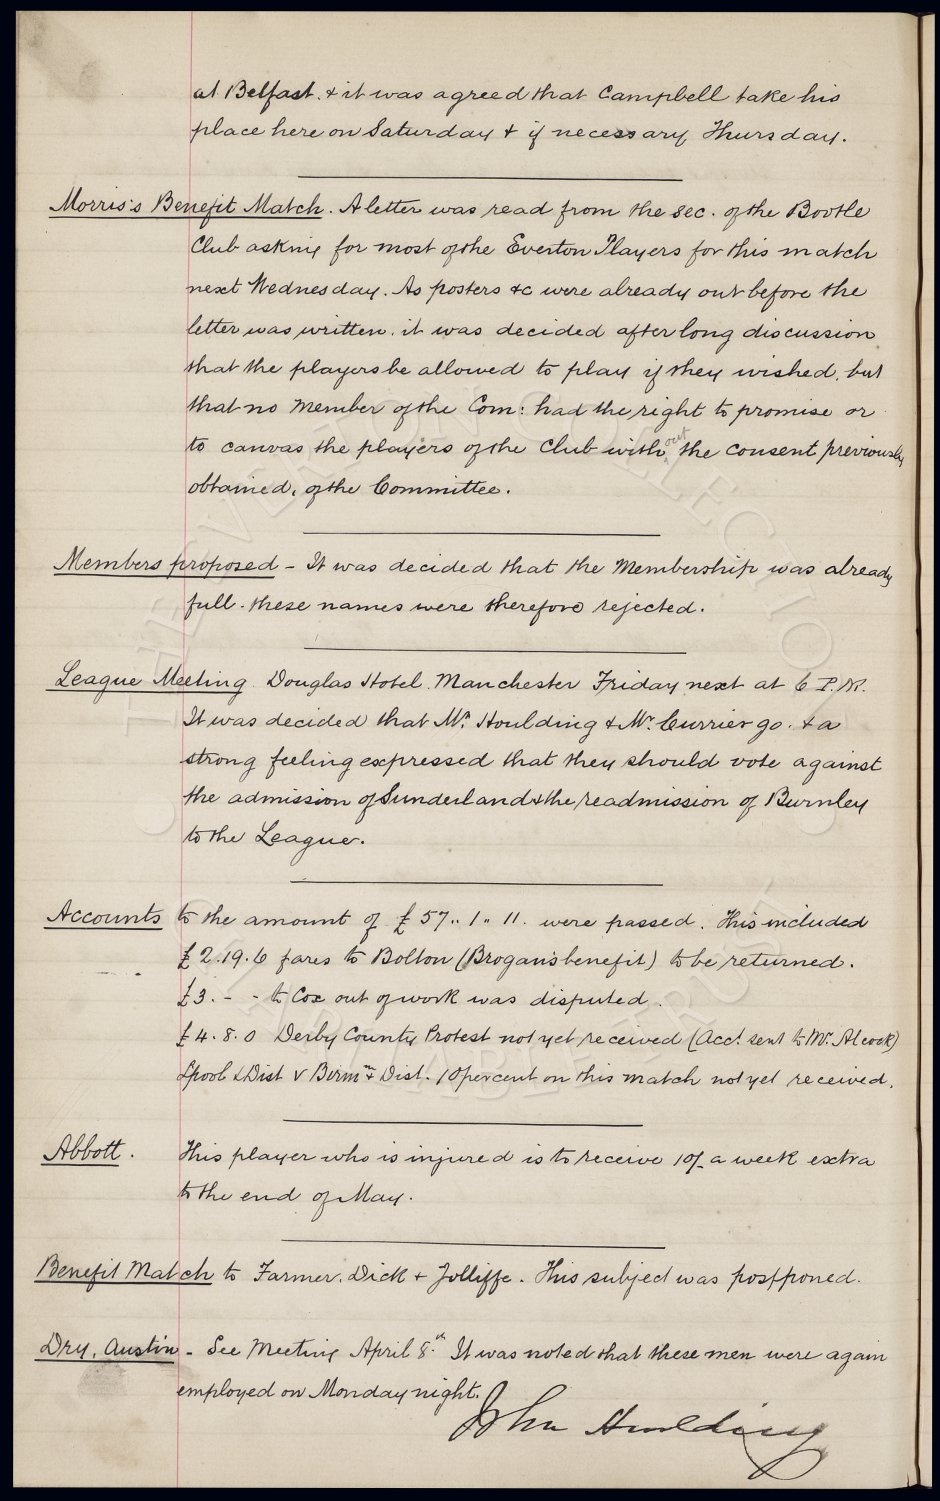 at Belfast. & it was agreed that Campbell take his
place here on Saturday & if necessary Thursday.
Morris's Benefit Match. A letter was read from the sec. of the Bootle
Club asking for most of the Everton Players for this match
next Wednesday. As posters &c were already out before the
letter was written. it was decided after long discussion
that the players be allowed to play if they wished, but
that no Member of the Com: had the right to promise or
to canvas the players of the Club without the consent previously
obtained, of the Committee.
Members proposed - It was decided that the Membership was already
full. these names were therefore rejected.
League Meeting. Douglas Hotel. Manchester Friday next at 6 P.M.
It was decided that Mr. Houlding & Mr. Currier go. & a
strong feeling expressed that they should vote against
the admission of Sunderland & the readmission of Burnley
to the League.
Accounts to the amount of £57.. 1.. 11. were passed. This included
£2.19.6 fares to Bolton (Brogan's benefit) to be returned.
£3. - - to Cox out of work was disputed.
£4. 8. 0 Derby County Protest not yet received (Acct. sent to Mr. Alcock)
Lpool & Dist v Birmm & Dist. 10 percent on this match not yet received.
Abbott. This player who is injured is to receive 10/- a week extra
to the end of May.
Benefit Match to Farmer, Dick & Jolliffe. This subject was postponed.
Dry, Austin - See Meeting April 8th It was noted that these men were again
employed on Monday night.
John Houlding
THE EVERTON COLLECTION
CHARITABLE TRUST